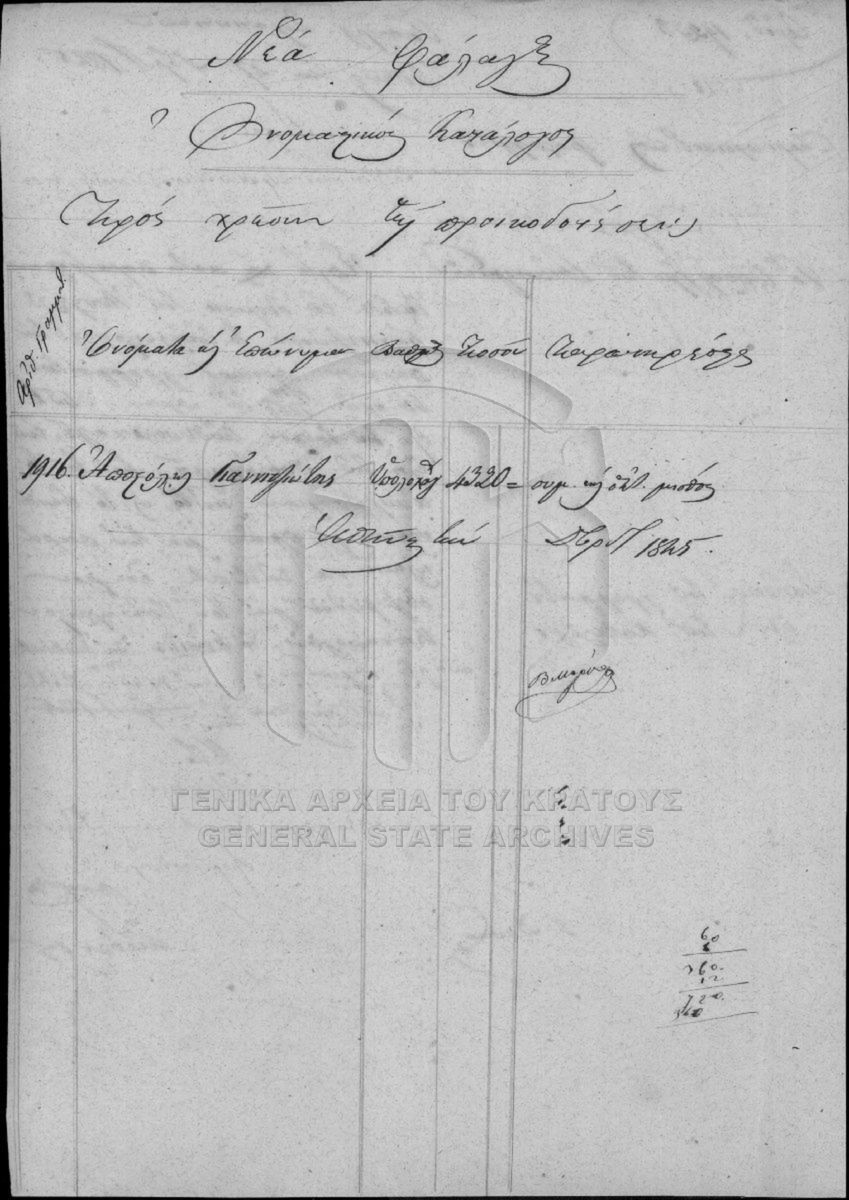 Νέα Φάλαγξ
Ὀνομαστικός Κατάλογος
Πρός χρῆσιν τῆς προικοδοτήσεως
Ἀριθ. Γραμμ.
Ὀνόματα καὶ Ἐπώνυμα Βαθμός Ποσόν Παρατηρήσεις
1916. Ἀποστόλης Παναγιώτης Ὑπολοχαγ 4320 = συμ. μισθός
Ἀθῆναι τὴν 1845.
ΓΕΝΙΚΑ ΑΡΧΕΙΑ ΤΟΥ ΚΡΑΤΟΥΣ
GENERAL STATE ARCHIVES
60
6
360.
12
720.
360